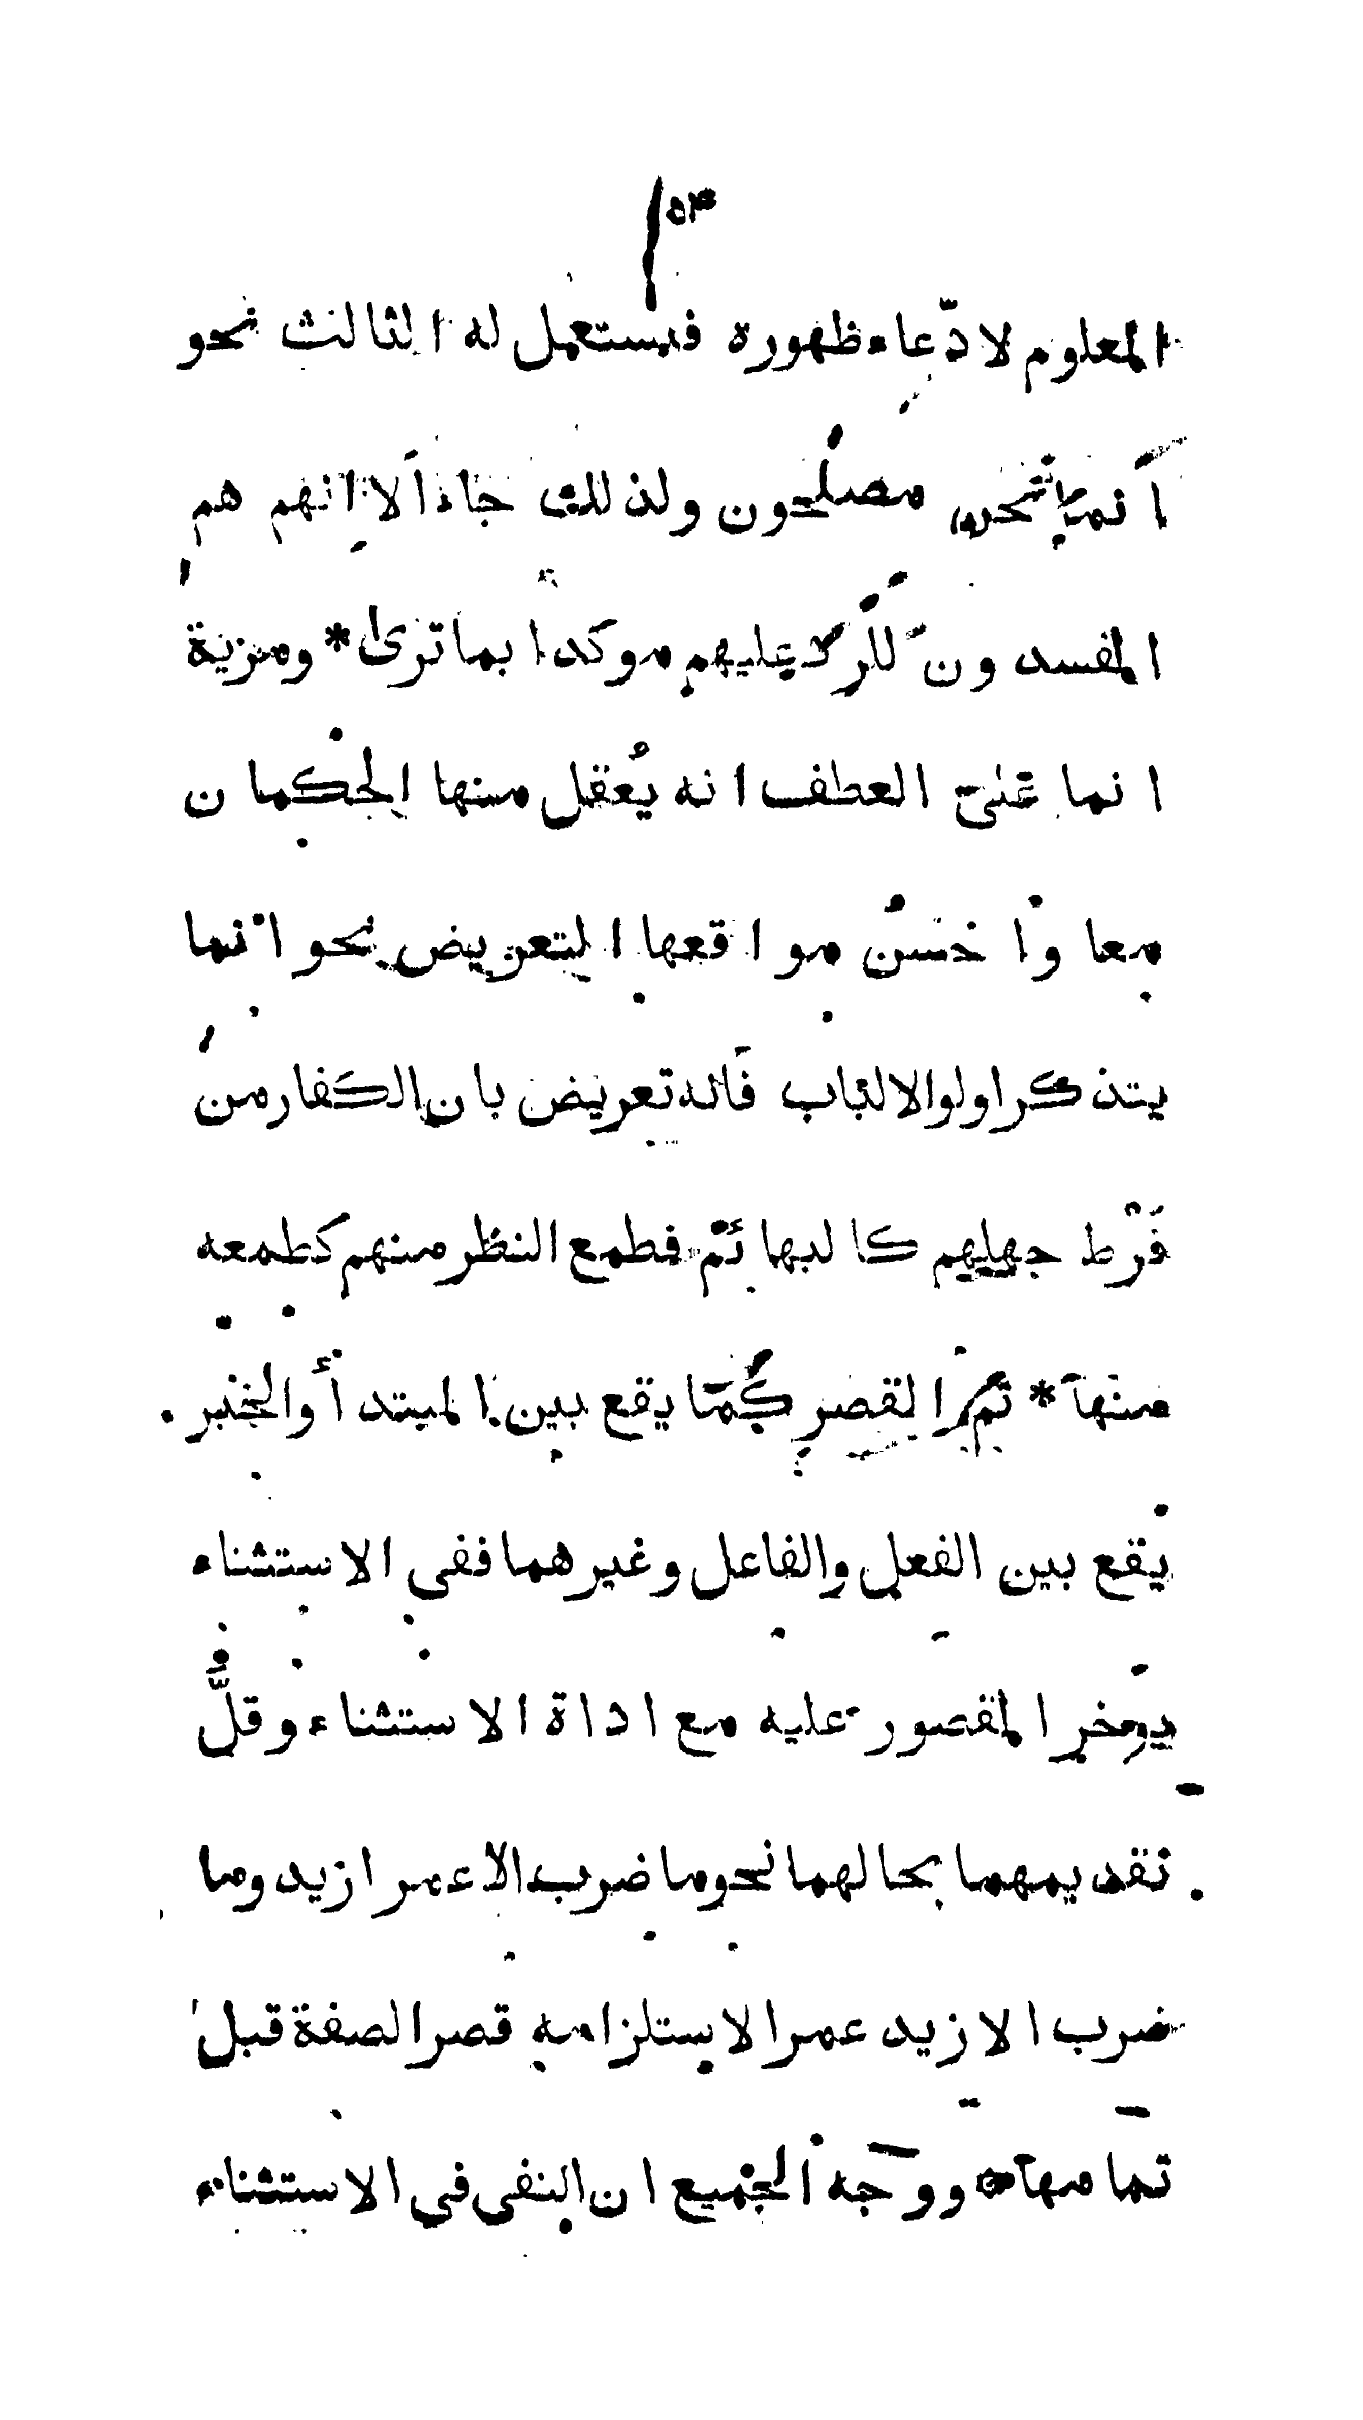 ٥٣
المعلوم لادّعاء ظهوره فيستعمل له الثالث نحو
انما نحن مصلحون ولذلك جاء الا انهم هم
المفسدون للرد عليهم موكدا بما ترى * ومزية
انما على العطف انه يُعقل منها الحكمان
معا واحسن مواقعها التعريض نحو انما
يتذكر اولوا الالباب فانه تعريض بان الكفار من
فَرْط جهلهم كالبهائم فطمع النظر منهم كطمعه
منها * ثم القصر كما يقع بين المبتدأ والخبر
يقع بين الفعل والفاعل وغيرهما ففى الاستثناء
يوخر المقصور عليه مع اداة الاستثناء وقلَّ
تقديمهما بحالهما نحو ما ضرب الا عمرا زيد وما
ضرب الا زيد عمرا لاستلزامه قصر الصفة قبل
تمامها * ووجه الجميع ان النفى في الاستثناء